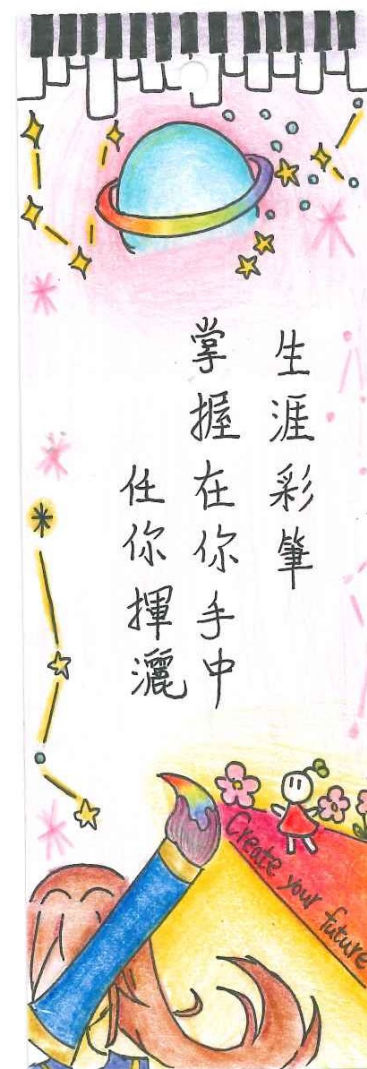 生涯彩筆
掌握在你手中
任你揮灑
Create your future